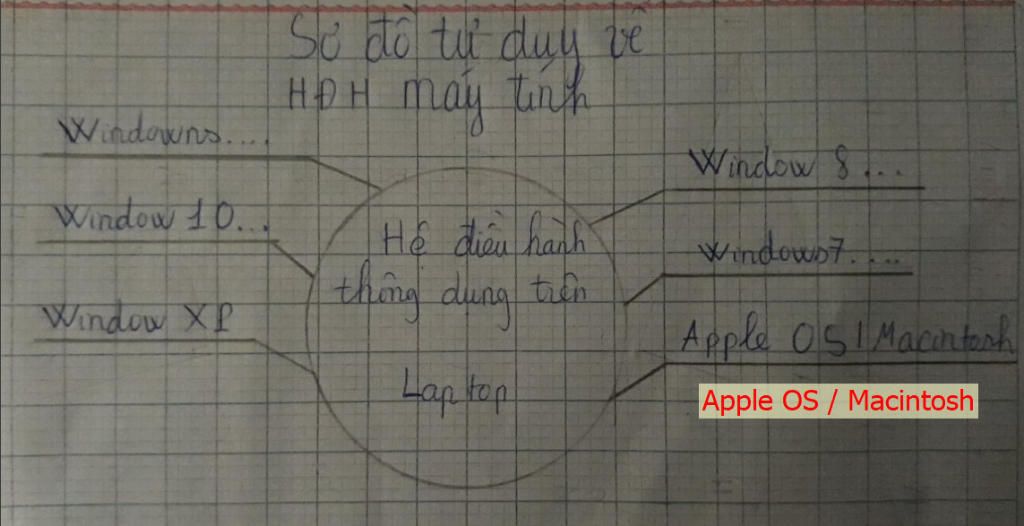 Sơ đồ tư duy về
HĐH máy tính
Windowns....
Window 10...
Window XP
Hệ điều hành
thông dụng trên
Laptop
Window 8...
Windows7....
Apple OS / Macintosh
Apple OS / Macintosh